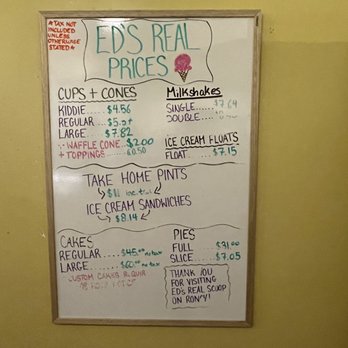 *TAX NOT
INCLUDED
UNLESS
OTHERWISE
STATED*
ED'S REAL
PRICES
CUPS + CONES
KIDDIE.....$4.56
REGULAR....
LARGE......$7.82
WAFFLE CONE...$2.00
+ TOPPINGS.....$0.50
Milkshakes
SINGLE......
DOUBLE....
ICE CREAM FLOATS
FLOAT......$7.15
TAKE HOME PINTS
$11 inc. tax
ICE CREAM SANDWICHES
$8.14
CAKES
REGULAR.....$45.00 no tax
LARGE.......$60.00 no tax
CUSTOM CAKES REQUIRE
PIES
FULL
SLICE.....$7.05
THANK YOU
FOR VISITING
ED'S REAL SCOOP
ON RONCY!